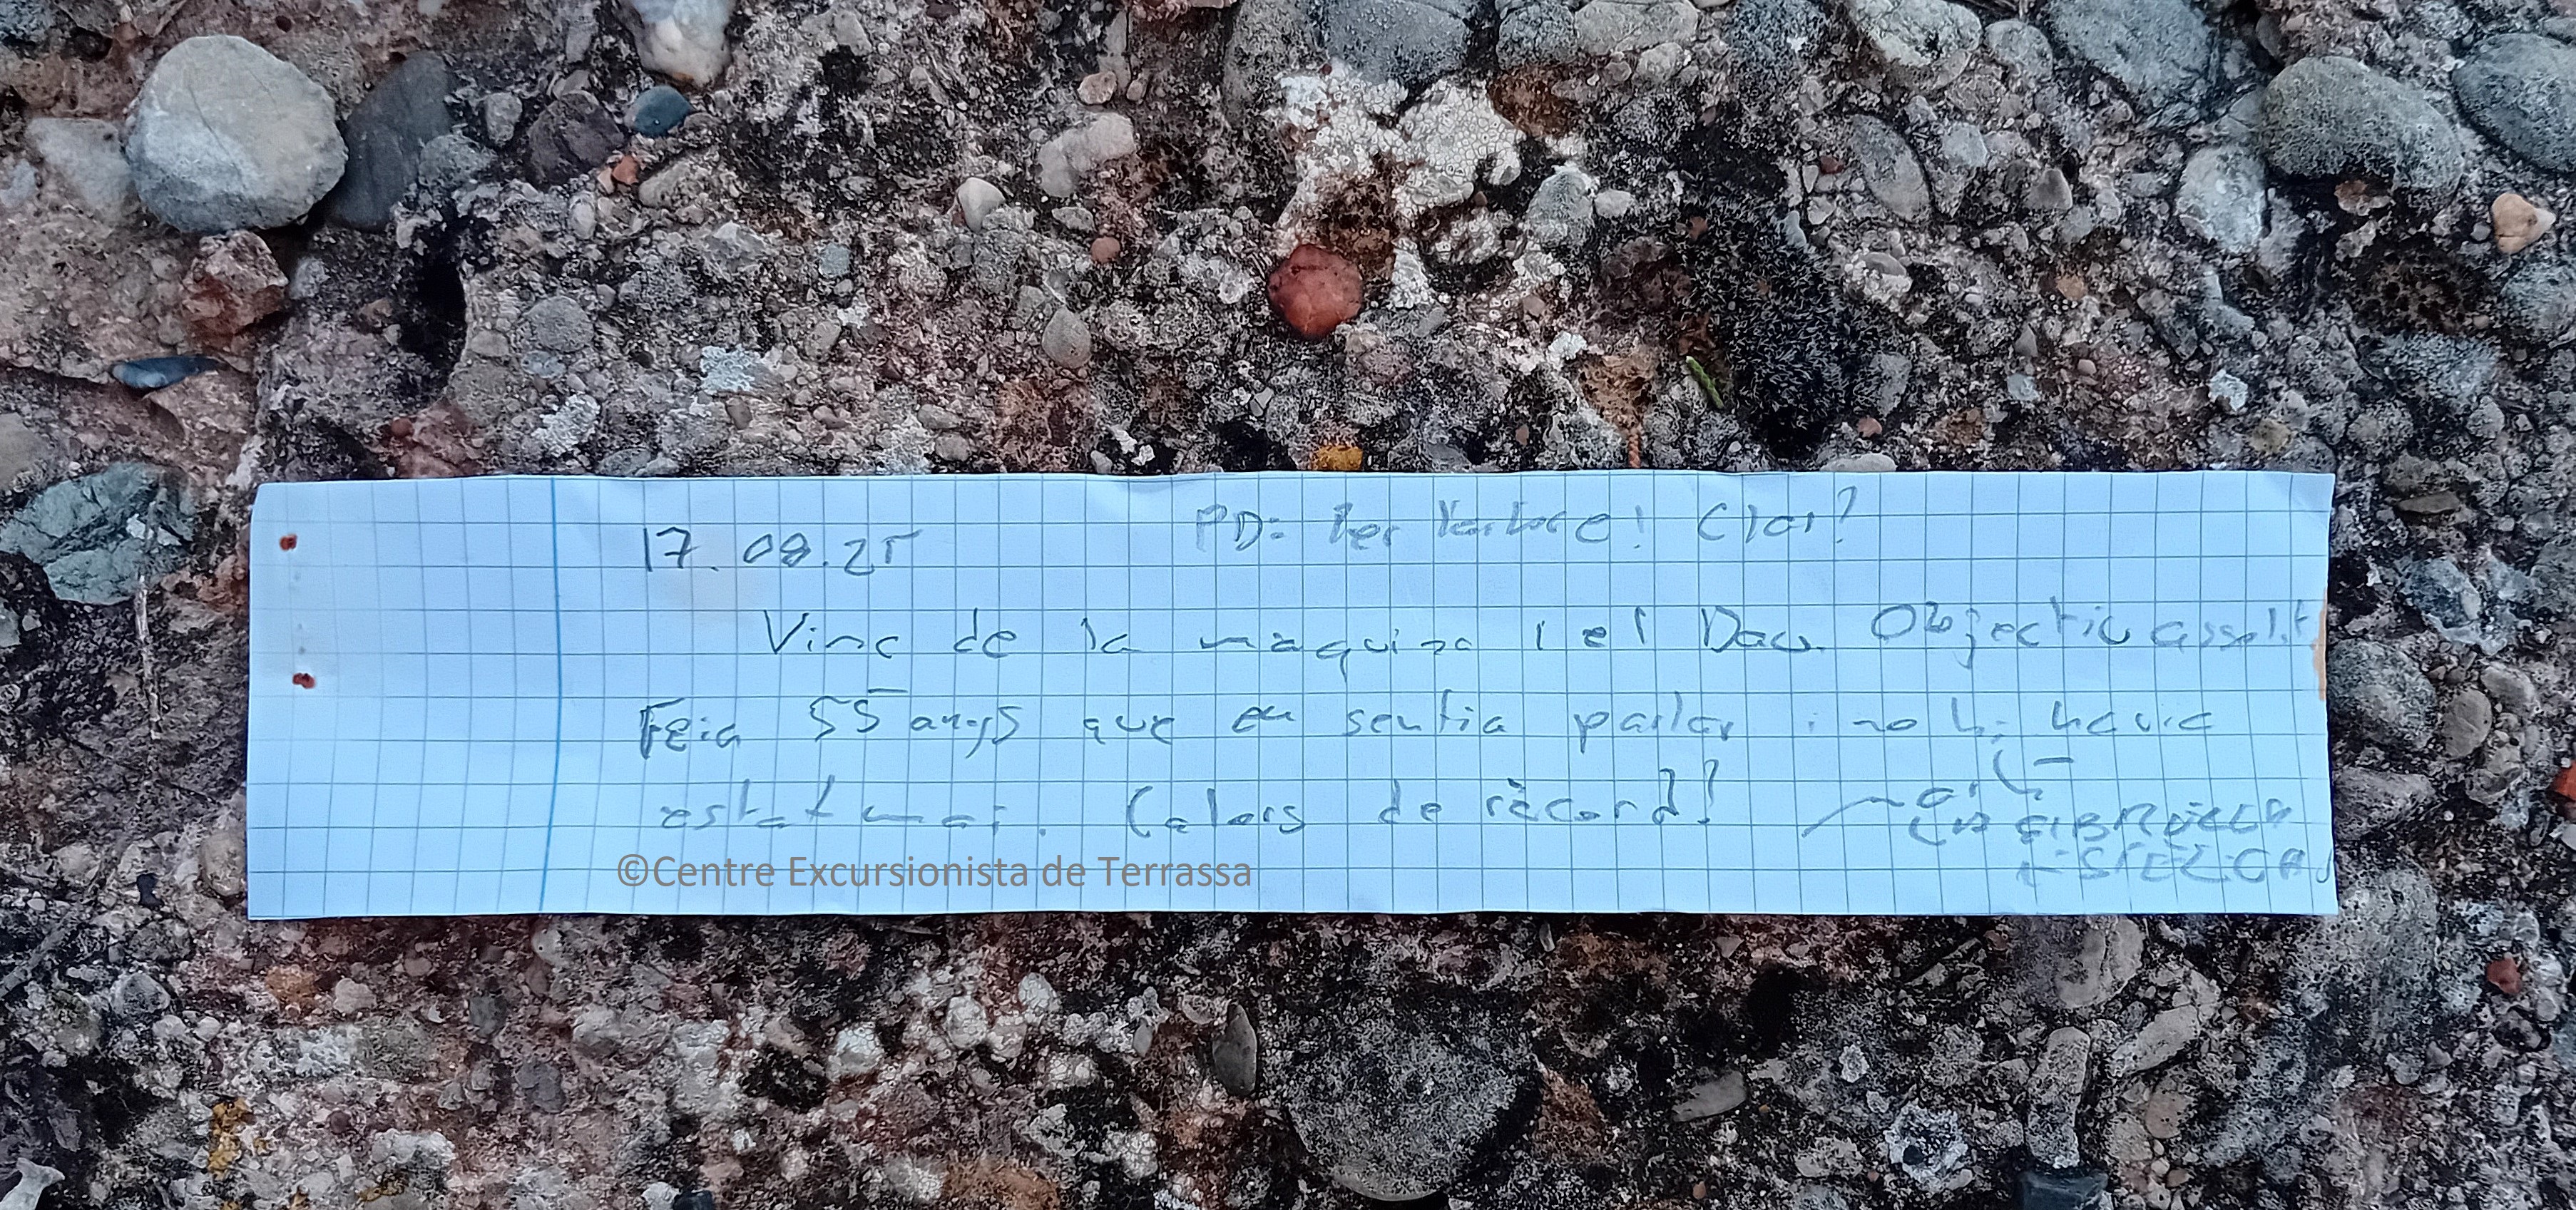 PD: Per Clar?
17.08.25
Vinc de la maquina i el Dau. Objectiu assolit
Feia 55 anys que en sentia parlar i no hi havia
estat mai. Calors de rècord!
©Centre Excursionista de Terrassa